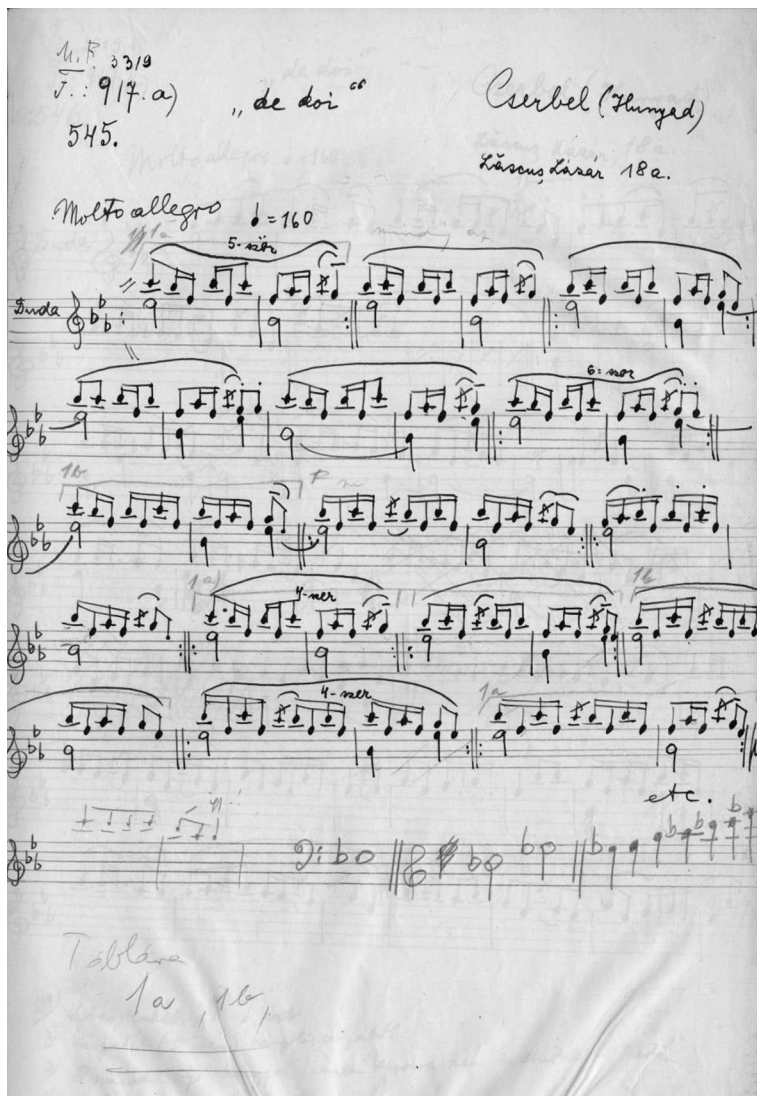 M. F. 3319
F.: 917. a) „de doi“ Cserbel (Hunyad)
545.
Lăscuș Lázár 18 a.
Molto allegro ♩ = 160
1a
5-ször
Duda
6-szor
1b
1a) 4-szer 1b
4-szer 1a
etc.
Táblára
1a, 1b,